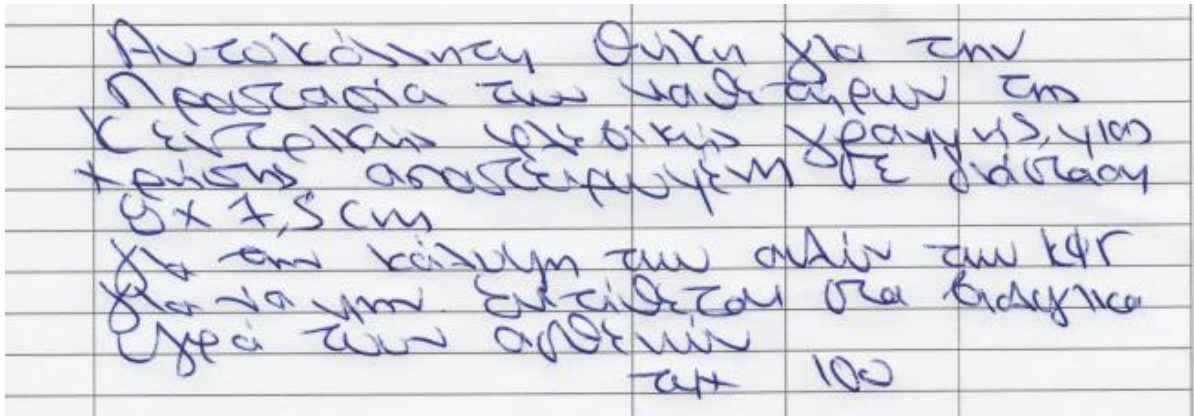 Αυτοκόλλητη θήκη για την
Προστασία των καθετήρων της
Κεντρικής φλεβικής γραμμής, μιας
χρήσης αποστειρωμένη σε διάσταση
8 x 7,5 cm
για την κάλυψη των αυλών των ΚΦΓ
για να μην εκτίθεται στα βιολογικα
υγρά των ασθενών
τμχ 100